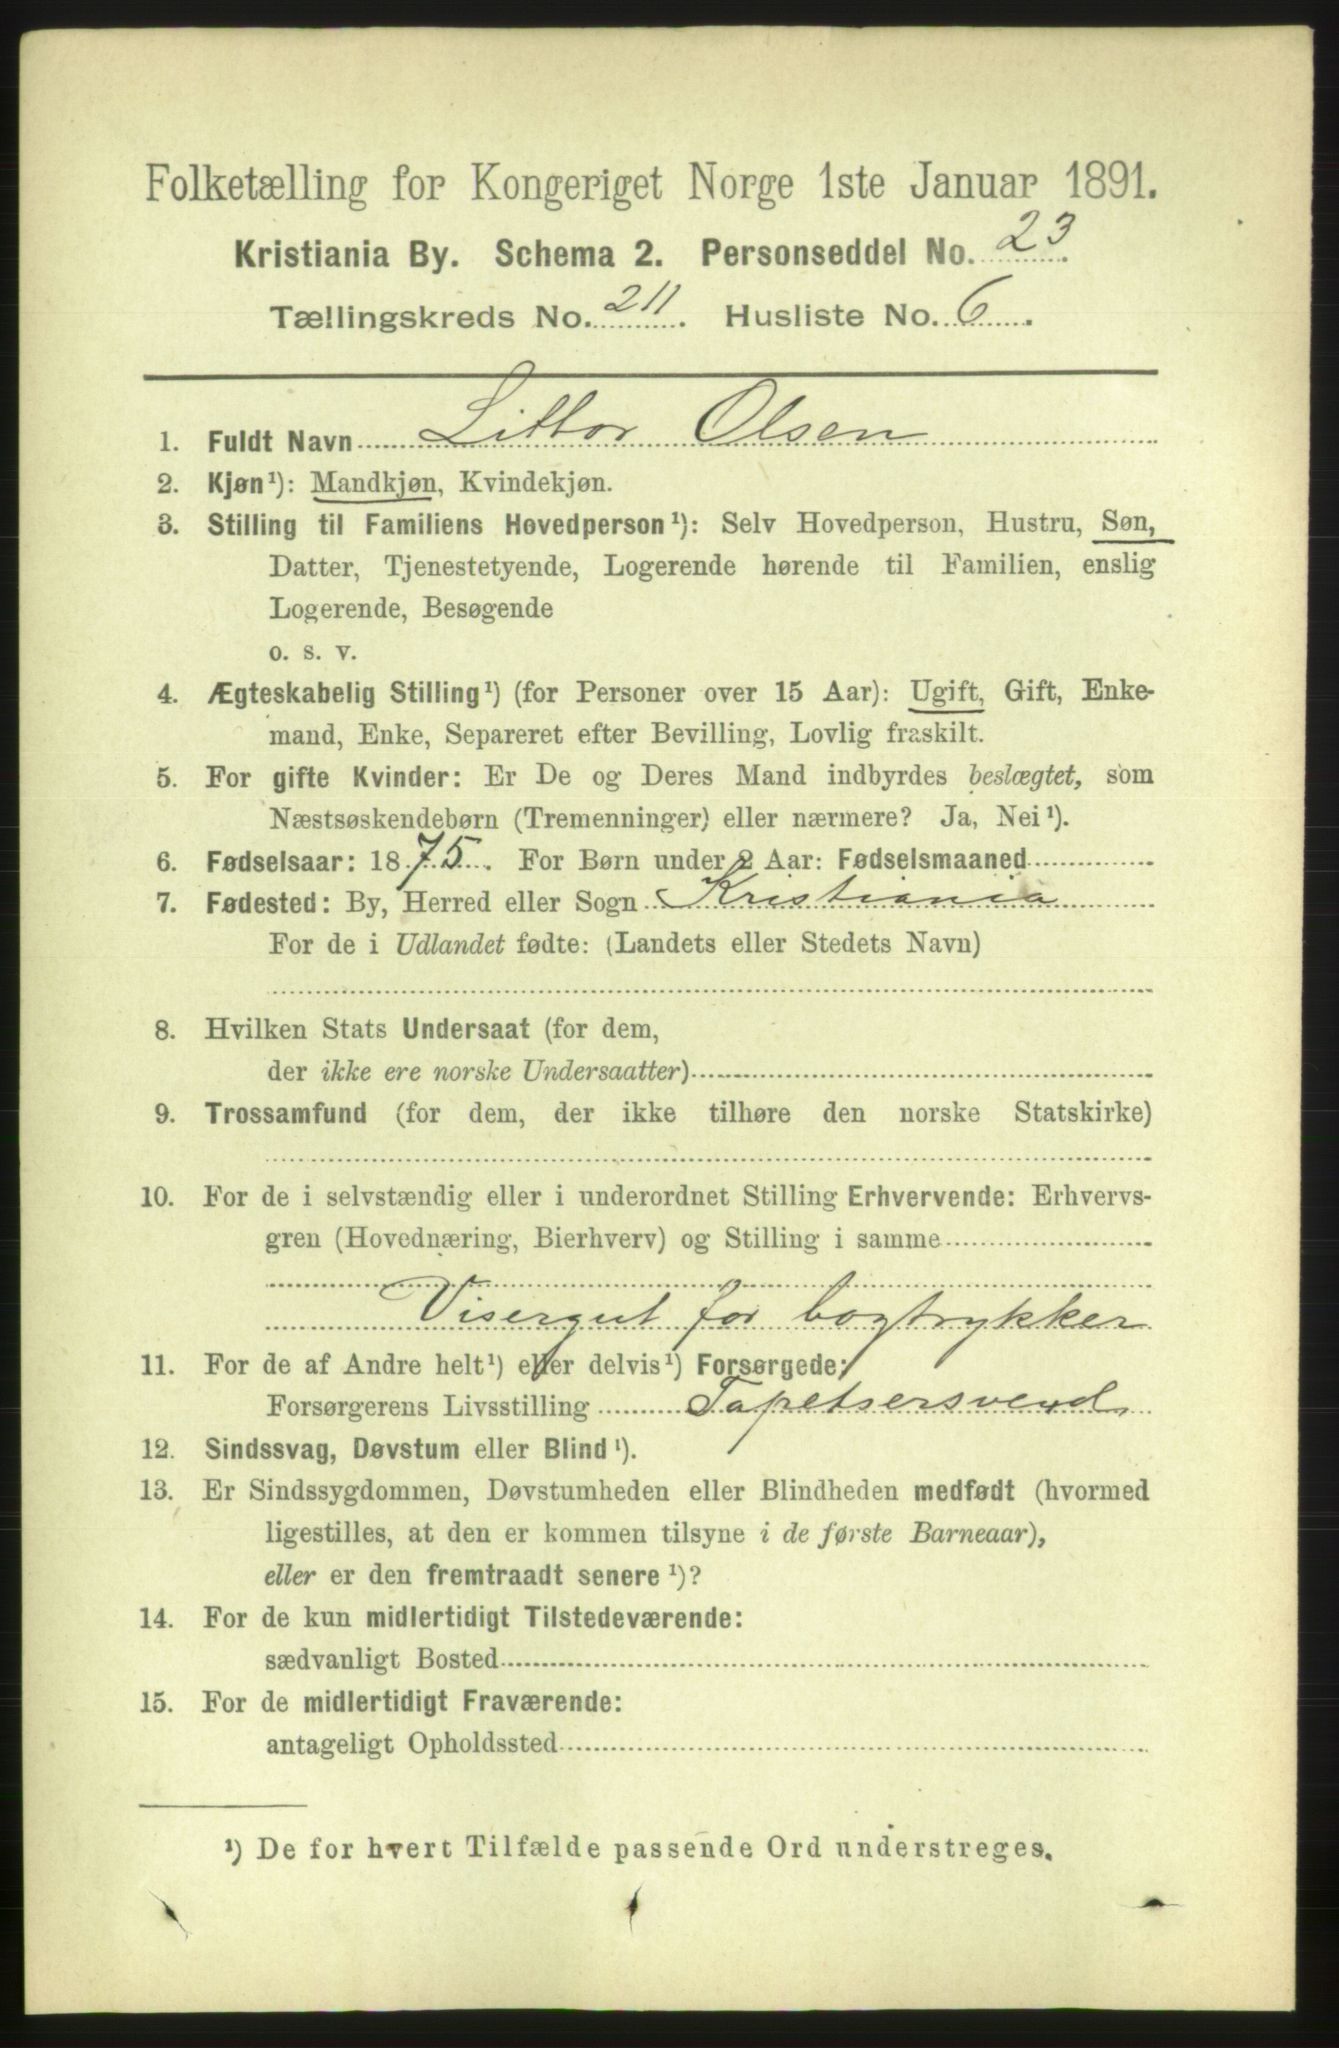 Folketælling for Kongeriget Norge 1ste Januar 1891.
Kristiania By. Schema 2. Personseddel No. 23.
Tællingskreds No. 211. Husliste No. 6.
1. Fuldt Navn Littor Olsen
2. Kjøn¹): Mandkjøn, Kvindekjøn.
3. Stilling til Familiens Hovedperson¹): Selv Hovedperson, Hustru, Søn,
Datter, Tjenestetyende, Logerende hørende til Familien, enslig
Logerende, Besøgende
o. s. v.
4. Ægteskabelig Stilling¹) (for Personer over 15 Aar): Ugift, Gift, Enke-
mand, Enke, Separeret efter Bevilling, Lovlig fraskilt.
5. For gifte Kvinder: Er De og Deres Mand indbyrdes beslægtet, som
Næstsøskendebørn (Tremenninger) eller nærmere? Ja, Nei¹).
6. Fødselsaar: 1875. For Børn under 2 Aar: Fødselsmaaned
7. Fødested: By, Herred eller Sogn Kristiania
For de i Udlandet fødte: (Landets eller Stedets Navn)
8. Hvilken Stats Undersaat (for dem,
der ikke ere norske Undersaatter)
9. Trossamfund (for dem, der ikke tilhøre den norske Statskirke)
10. For de i selvstændig eller i underordnet Stilling Erhvervende: Erhvervs-
gren (Hovednæring, Bierhverv) og Stilling i samme
Visergut for bogtrykker
11. For de af Andre helt¹) eller delvis¹) Forsørgede:
Forsørgerens Livsstilling Tapetsersvend
12. Sindssvag, Døvstum eller Blind¹).
13. Er Sindssygdommen, Døvstumheden eller Blindheden medfødt (hvormed
ligestilles, at den er kommen tilsyne i de første Barneaar),
eller er den fremtraadt senere¹)?
14. For de kun midlertidigt Tilstedeværende:
sædvanligt Bosted
15. For de midlertidigt Fraværende:
antageligt Opholdssted
¹) De for hvert Tilfælde passende Ord understreges.